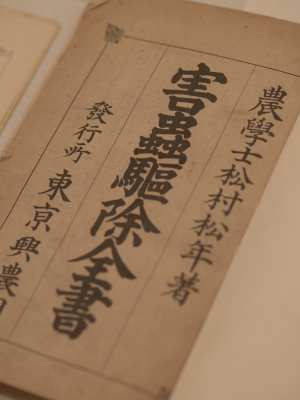 農學士松村松年著
害蟲驅除全書
發行所 東京興農